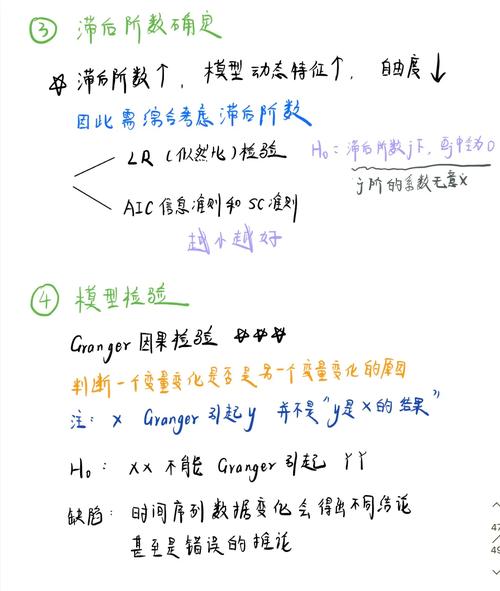 ③ 滞后阶数确定
☆ 滞后阶数↑, 模型动态特征↑, 自由度↓
因此需综合考虑滞后阶数
LR (似然比) 检验 H₀: 滞后阶数j下, 中全为0
j阶的系数无意义
AIC 信息准则和 SC 准则
越小越好
④ 模型检验
Granger 因果检验 ☆☆☆
判断一个变量变化是否是另一个变量变化的原因
注: x Granger 引起 y 并不是“y是x的结果”
H₀: xx 不能 Granger 引起 YY
缺陷: 时间序列数据变化会得出不同结论
甚至是错误的推论
47
/
49